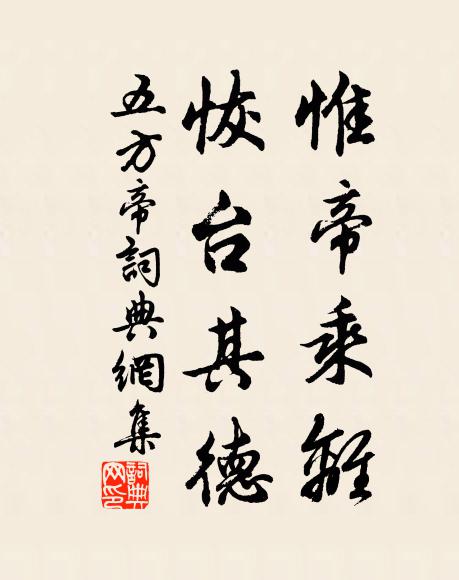 惟帝乘離
恢台其德
五方帝詞典網集
詞典网印